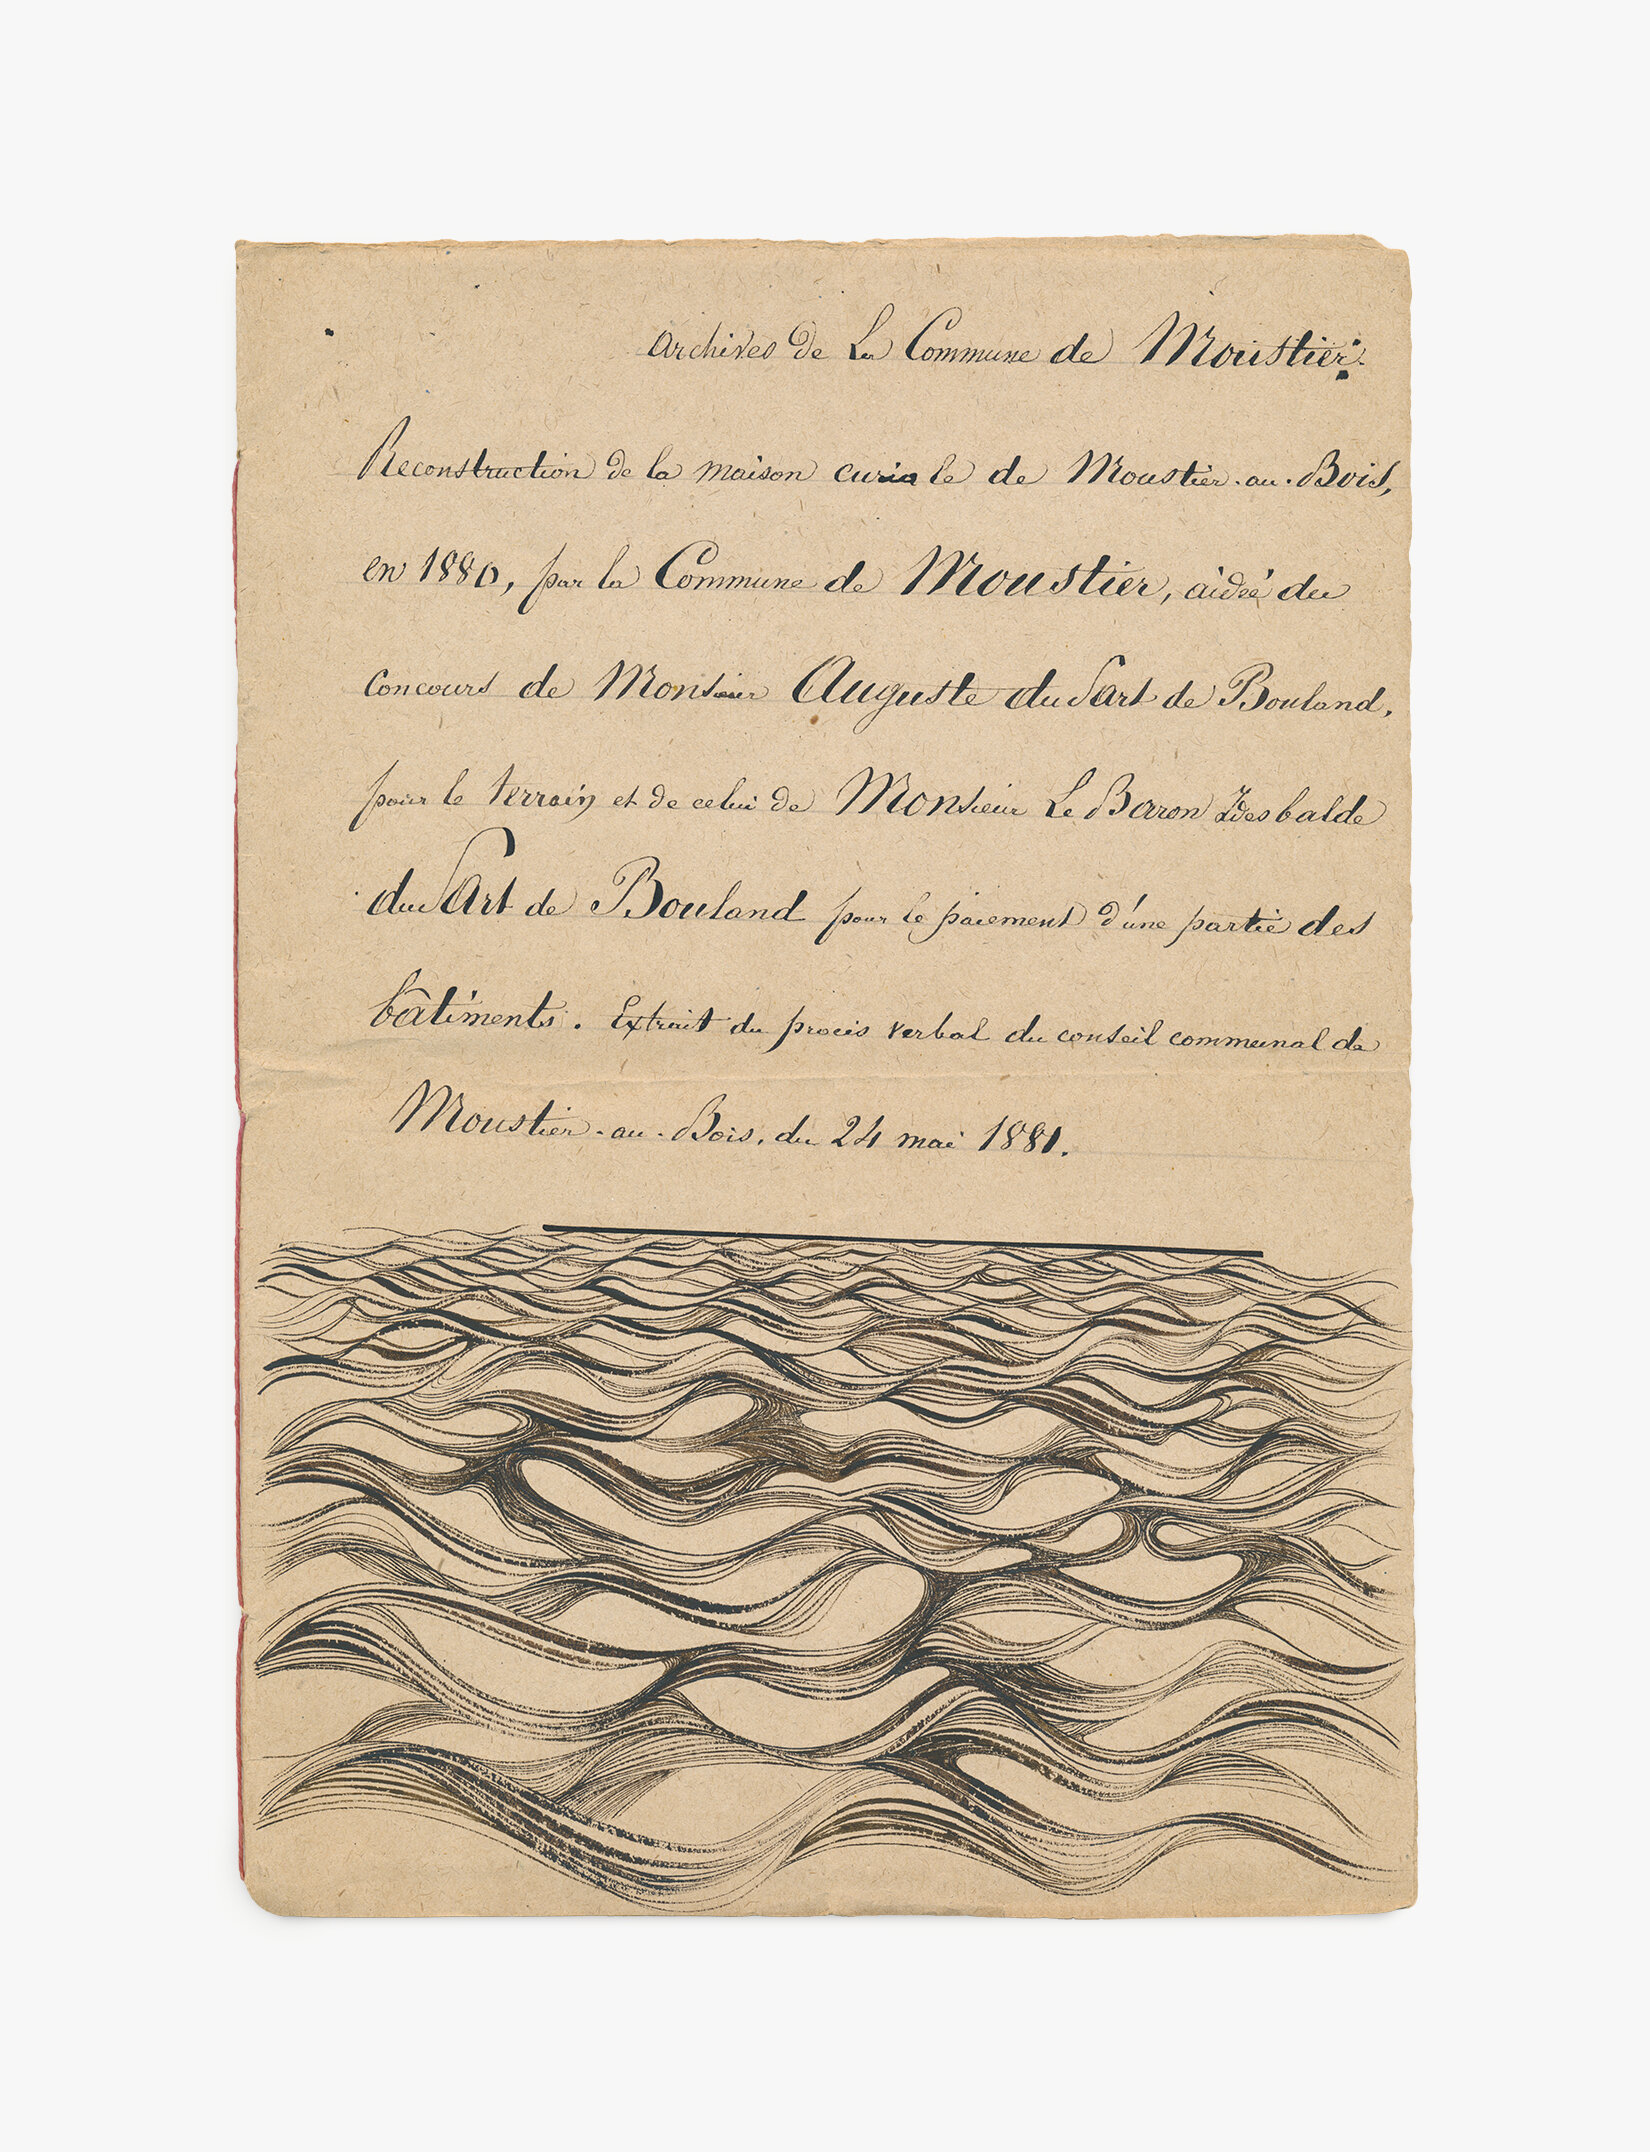 Archives de La Commune de Moustier.
Reconstruction de la maison curiale de Moustier-au-Bois,
en 1880, par la Commune de Moustier, aidée du
concours de Monsieur Auguste du Sart de Bouland,
pour le terrain et de celui de Monsieur Le Baron Idesbalde
du Sart de Bouland pour le paiement d'une partie des
bâtiments. Extrait du procès verbal du conseil communal de
Moustier-au-Bois, du 24 mai 1881.